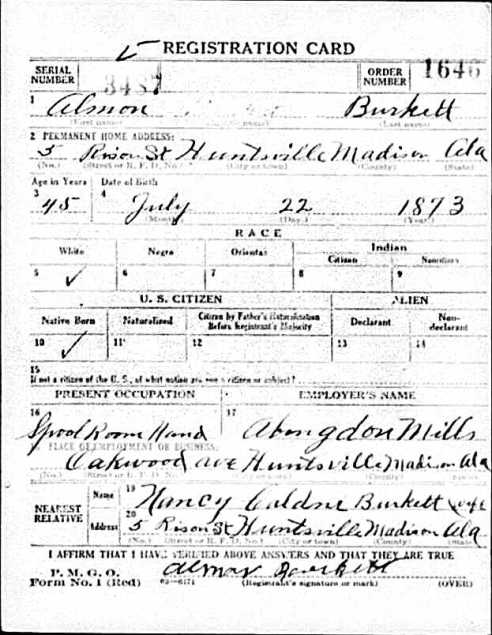 REGISTRATION CARD
SERIAL NUMBER 3487 ORDER NUMBER 1646
1 Almon Burkett
(First name) (Last name)
2 PERMANENT HOME ADDRESS:
5 Rison St Huntsville Madison Ala
(No.) (Street or R. F. D. No.) (City or town) (County) (State)
Age in Years Date of Birth
3 45 4 July 22 1873
(Month) (Day) (Year)
RACE
White Negro Oriental Indian
Citizen Noncitizen
5 ✓ 6 7 8 9
U. S. CITIZEN ALIEN
Native Born Naturalized Citizen by Father's Naturalization Before Registrant's Majority Declarant Non-declarant
10 ✓ 11 12 13 14
15
If not a citizen of the U. S., of what nation are you a citizen or subject?
PRESENT OCCUPATION EMPLOYER'S NAME
16 Spool Room Hand 17 Abingdon Mills
PLACE OF EMPLOYMENT OR BUSINESS:
Oakwood ave Huntsville Madison Ala
(No.) (County) (State)
NEAREST RELATIVE Name 19 Nancy Burkett wife
Address 20 5 Rison St Huntsville Madison Ala
(No.) (Street or R. F. D. No.) (City or town) (County) (State)
I AFFIRM THAT I HAVE VERIFIED ABOVE ANSWERS AND THAT THEY ARE TRUE
P. M. G. O.
Form No. 1 (Red) Almon Burkett
(Registrant's signature or mark) (OVER)